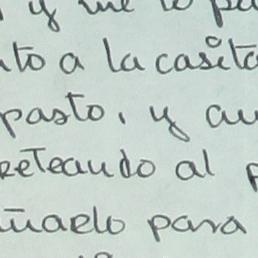 y me lo pa
nto a la casita
pasto, y au
reteando al p
ñarlo para